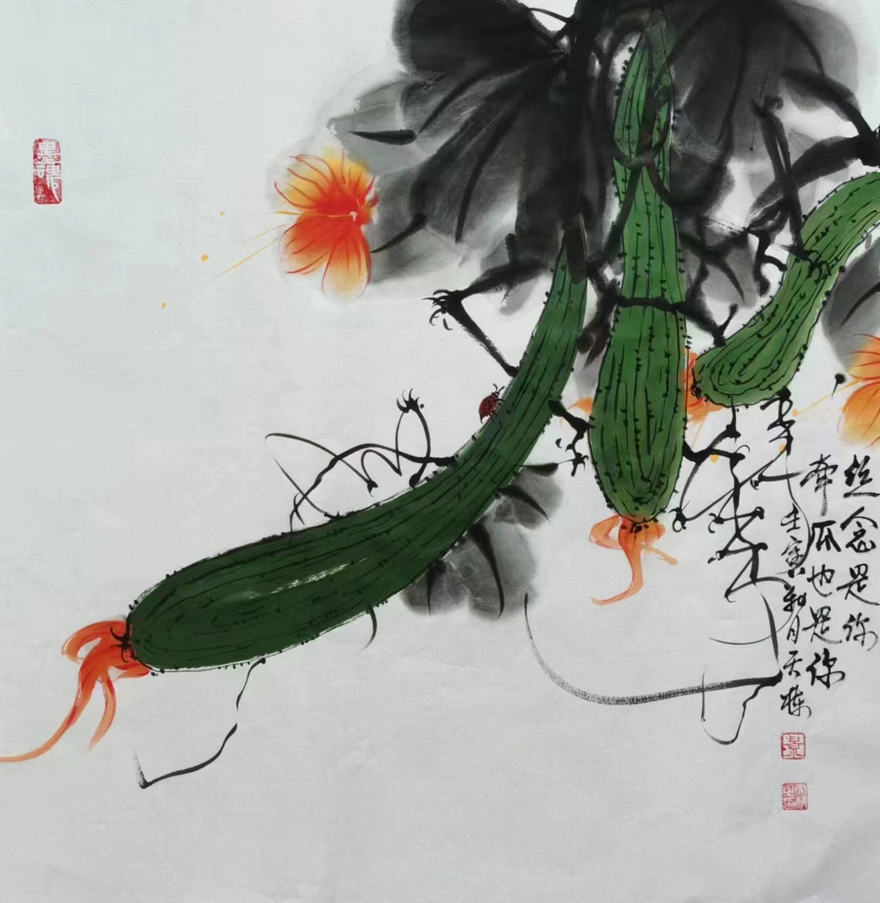 丝念是你
牵瓜也是你
壬寅 月天栋